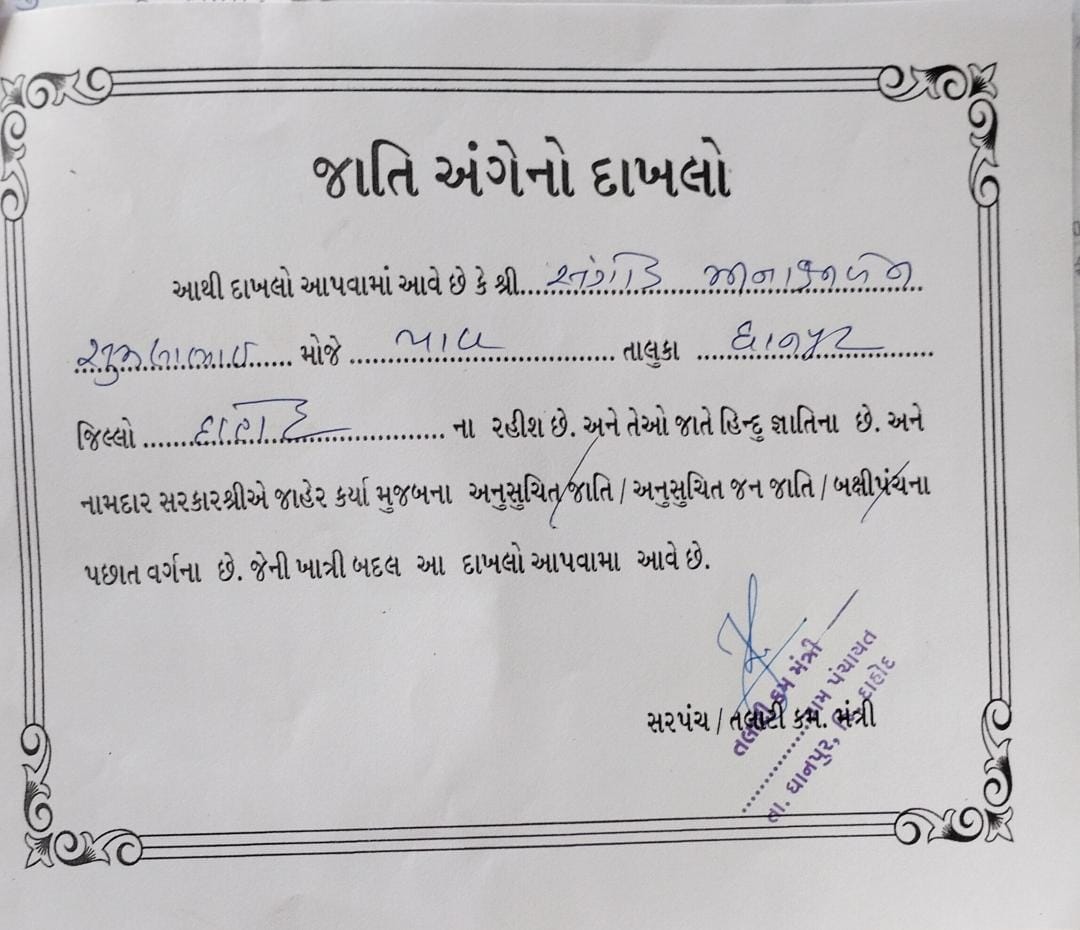 જાતિ અંગેનો દાખલો
આથી દાખલો આપવામાં આવે છે કે શ્રી..............................
.................... મોજે .............................. તાલુકા ધાનપુર
જિલ્લો દાહોદ ના રહીશ છે. અને તેઓ જાતે હિન્દુ જ્ઞાતિના છે. અને
નામદાર સરકારશ્રીએ જાહેર કર્યા મુજબના અનુસુચિત જાતિ / અનુસુચિત જન જાતિ / બક્ષીપંચના
પછાત વર્ગના છે. જેની ખાત્રી બદલ આ દાખલો આપવામા આવે છે.
સરપંચ / તલાટી કમ. મંત્રી
તલાટી કમ મંત્રી
.............ગ્રામ પંચાયત
તા. ધાનપુર, જિ. દાહોદ